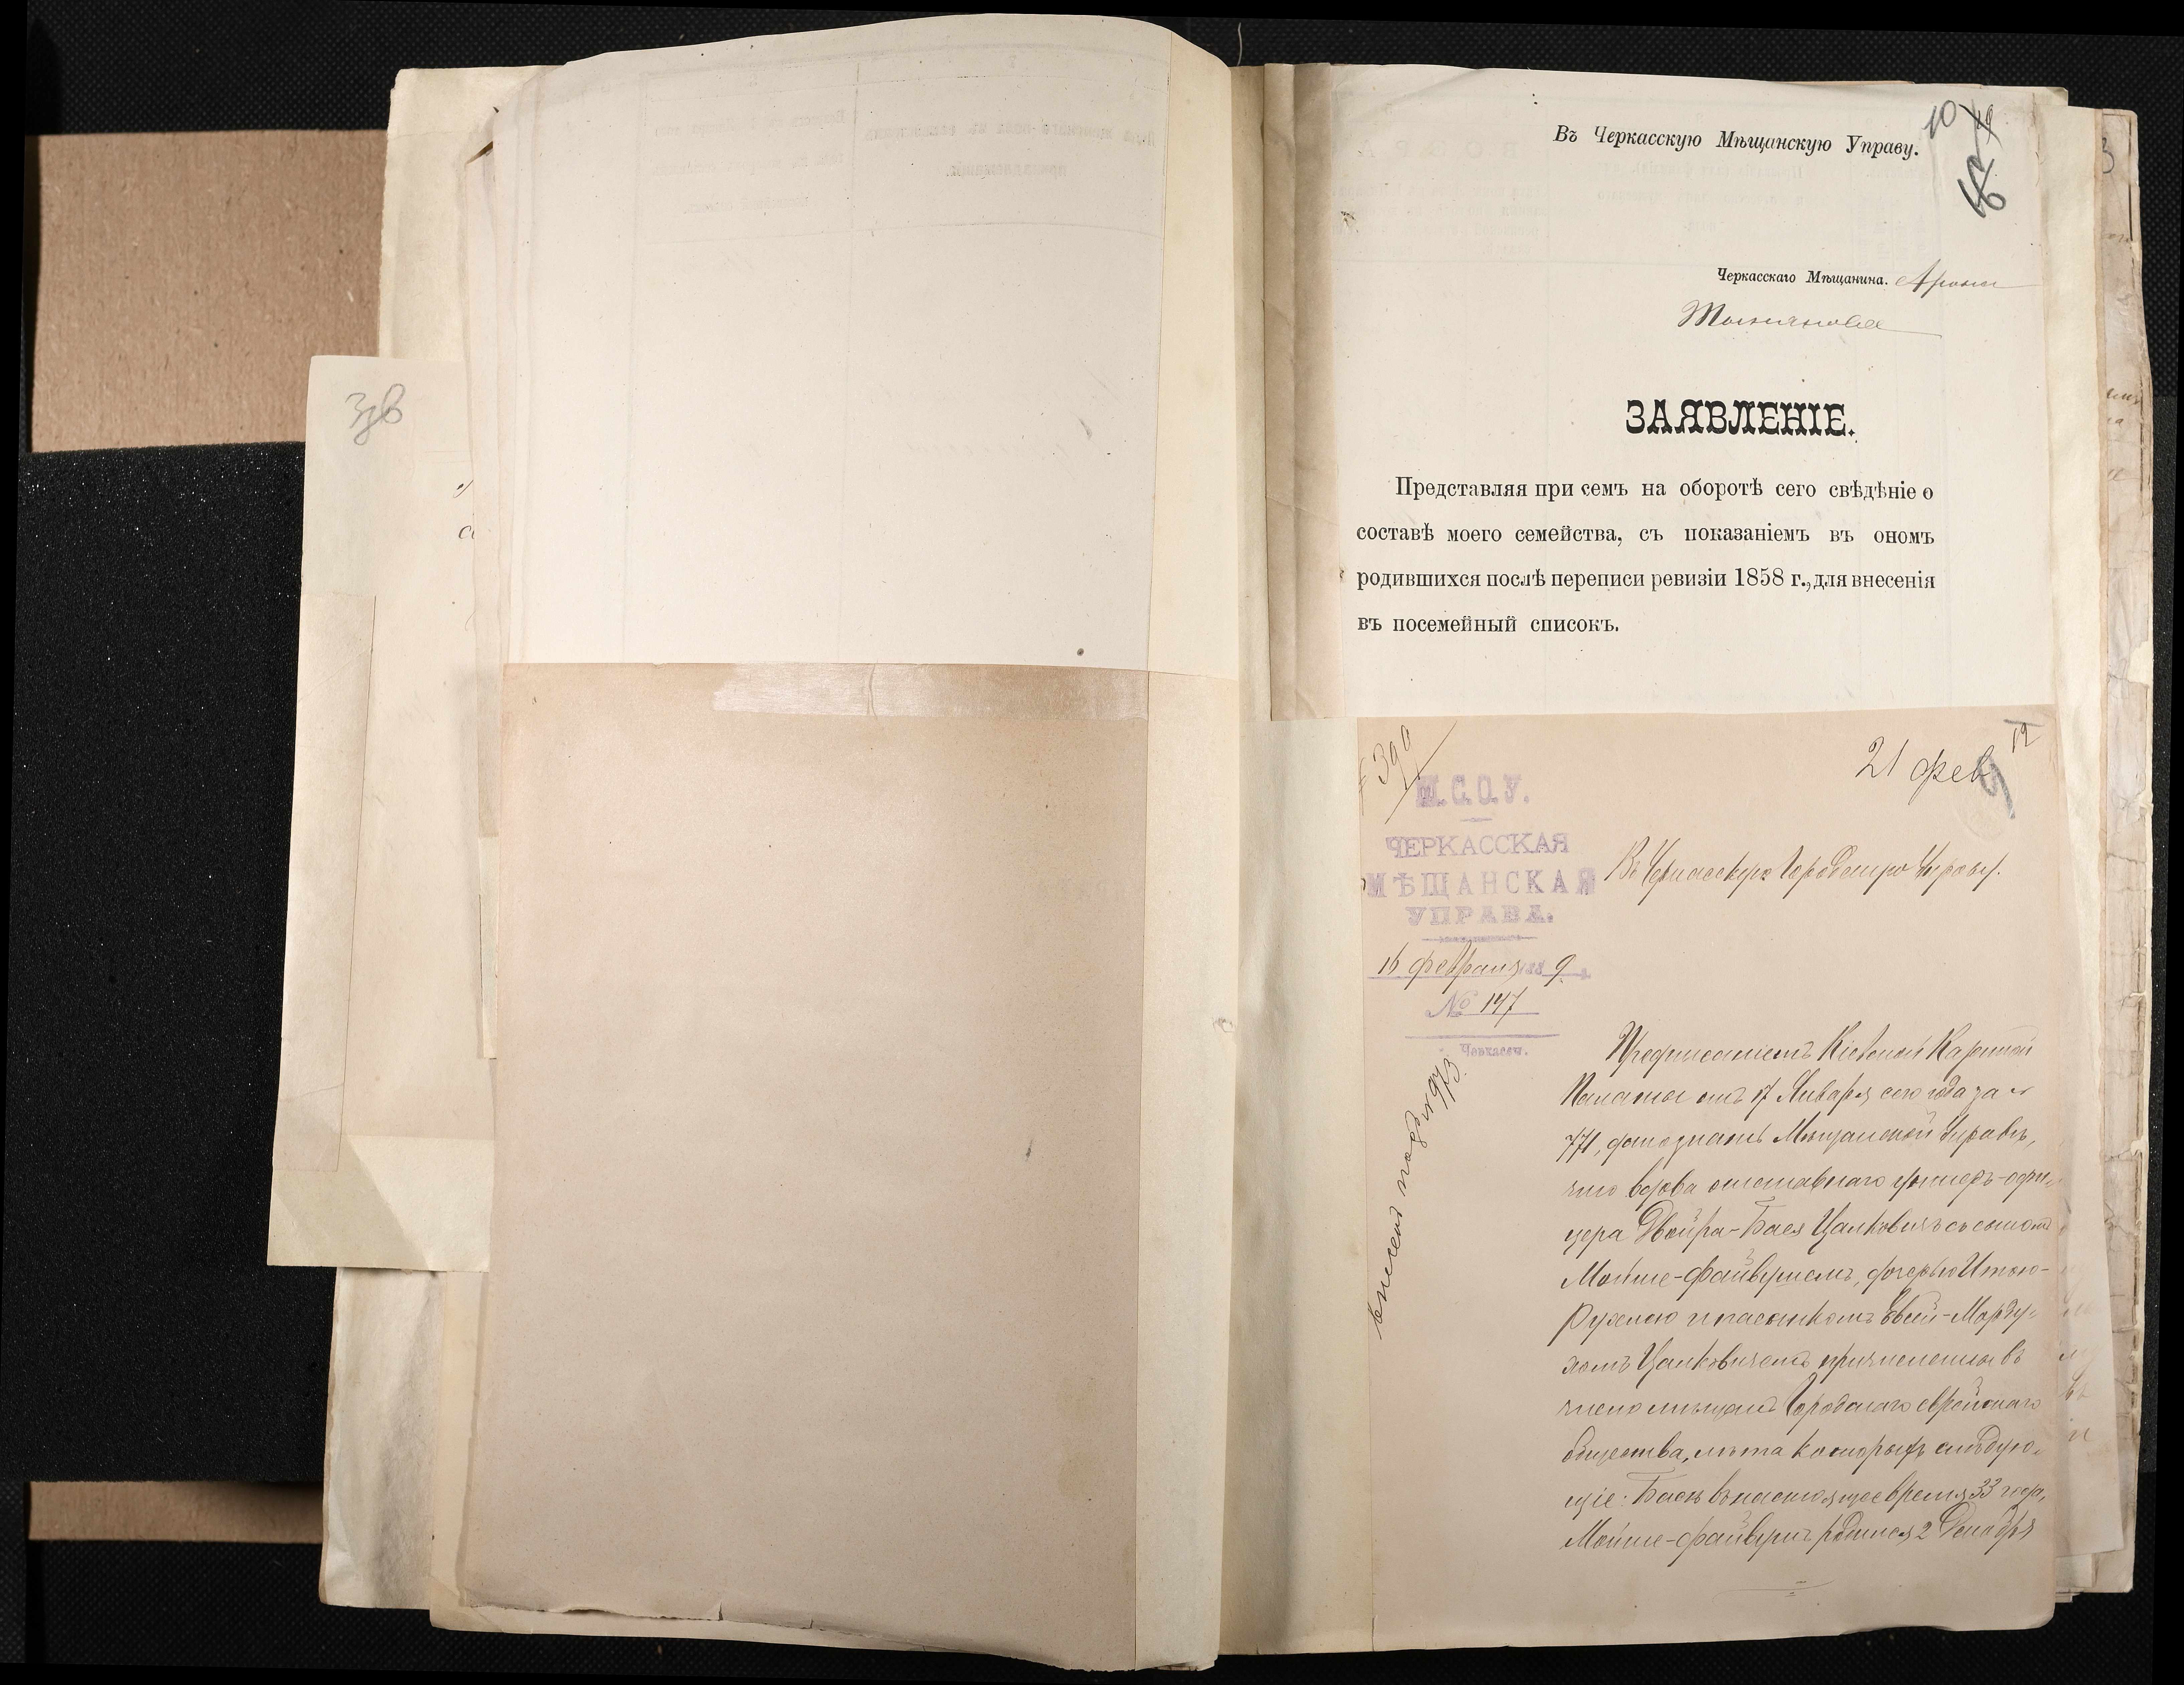 Въ Черкасскую Мѣщанскую Управу.
10
Черкасскаго Мѣщанина. Арона
ЗАЯВЛЕНІЕ.
Представляя при семъ на оборотѣ сего свѣдѣніе о
составѣ моего семейства, съ показаніемъ въ ономъ
родившихся послѣ переписи ревизіи 1858 г., для внесенія
въ посемейный списокъ.
390
21 фев
12
М.С.О.У.
ЧЕРКАССКАЯ
МѢЩАНСКАЯ
УПРАВА.
16 февраля 1889
№ 147
Черкассы.
внесен под № 973.
Въ Черкасскую Городскую Управу.
Предписаніемъ Кіевской Казенной
Палаты отъ 17 Января сего года за №
771, дано знать Мѣщанской Управѣ,
что вдова отставнаго унтеръ-офи-
цера Двойра-Бася Цалковичъ съ сыномъ
Мойше-Файвишемъ, дочерью Итою-
Рухлею и пасынкомъ Овсей-Морду-
хомъ Цалковичемъ причислены въ
число мѣщанъ Городскаго еврейскаго
общества, лѣта которыхъ слѣдую-
щіе: Бася въ настоящее время 33 года,
Мойше-Файвишъ родился 2 Декабря